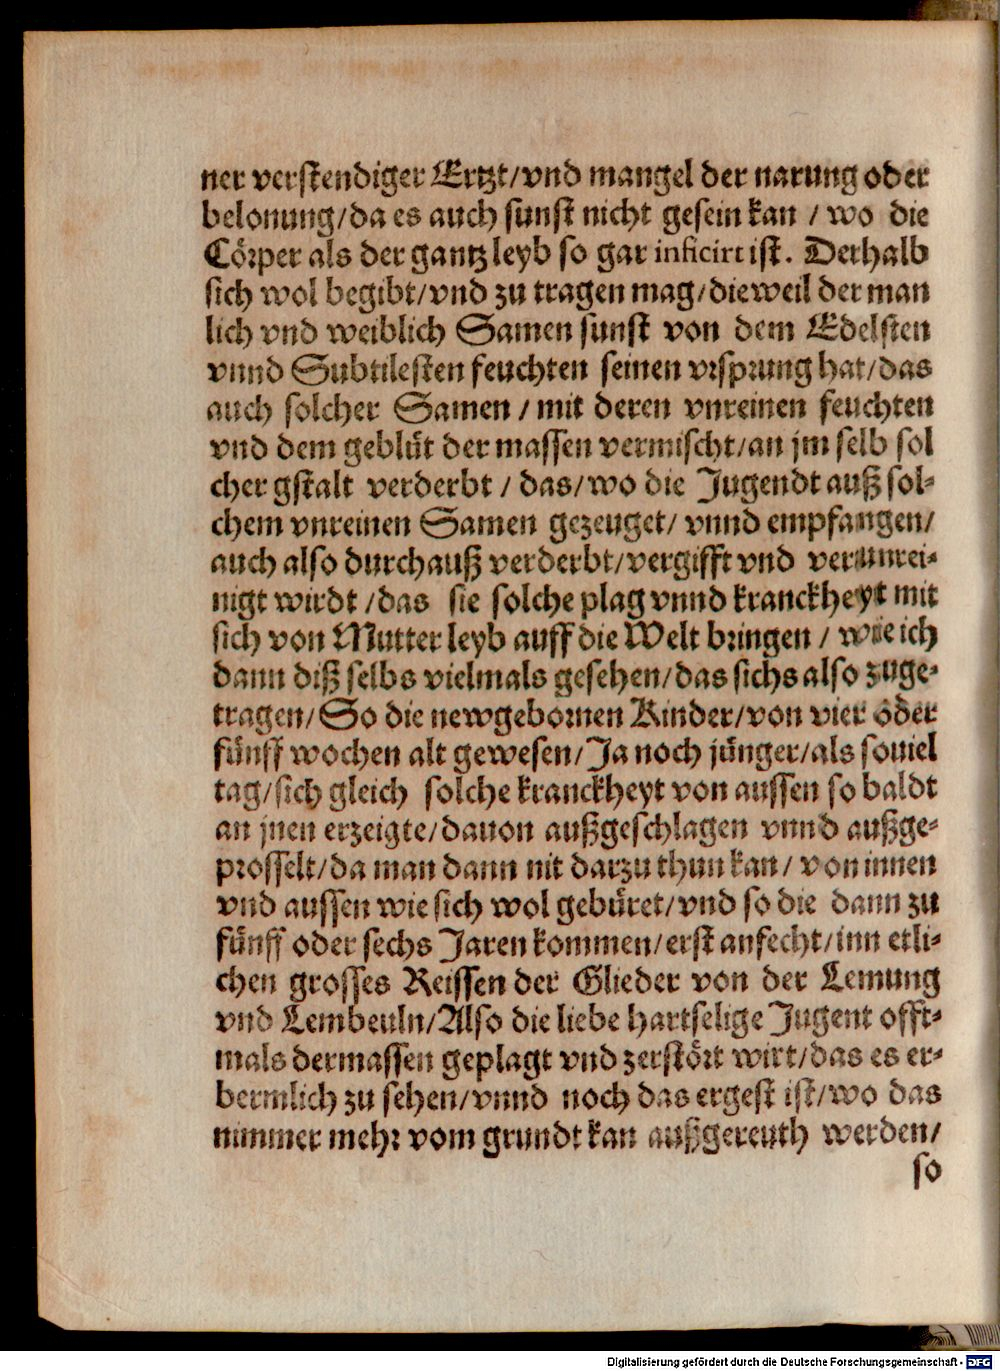 ner verstendiger Ertzt/vnd mangel der narung oder
belonung/da es auch sunst nicht gesein kan / wo die
Cörper als der gantz leyb so gar inficirt ist. Derhalb
sich wol begibt/vnd zu tragen mag/dieweil der man
lich vnd weiblich Samen sunst von dem Edelsten
vnnd Subtilesten feuchten seinen vrsprung hat/das
auch solcher Samen / mit deren vnreinen feuchten
vnd dem geblüt der massen vermischt/an jm selb sol
cher gstalt verderbt / das/wo die Jugendt auß sol-
chem vnreinen Samen gezeuget/ vnnd empfangen/
auch also durchauß verderbt/vergifft vnd verunrei-
nigt wirdt /das sie solche plag vnnd kranckheyt mit
sich von Mutter leyb auff die Welt bringen / wie ich
dann diß selbs vielmals gesehen/das sichs also zuge-
tragen/So die newgebornen Kinder/von vier oder
fünff wochen alt gewesen/Ja noch jünger/als souiel
tag/sich gleich solche kranckheyt von aussen so baldt
an jnen erzeigte/dauon außgeschlagen vnnd außge-
prosselt/da man dann nit darzu thun kan/ von innen
vnd aussen wie sich wol gebüret/vnd so die dann zu
fünff oder sechs Jaren kommen/erst anfecht/inn etli-
chen grosses Reissen der Glieder von der Lemung
vnd Lembeuln/Also die liebe hartselige Jugent offt-
mals dermassen geplagt vnd zerstört wirt/das es er-
bermlich zu sehen/vnnd noch das ergest ist/wo das
nimmer mehr vom grundt kan außgereuth werden/
so
Digitalisierung gefördert durch die Deutsche Forschungsgemeinschaft - DFG